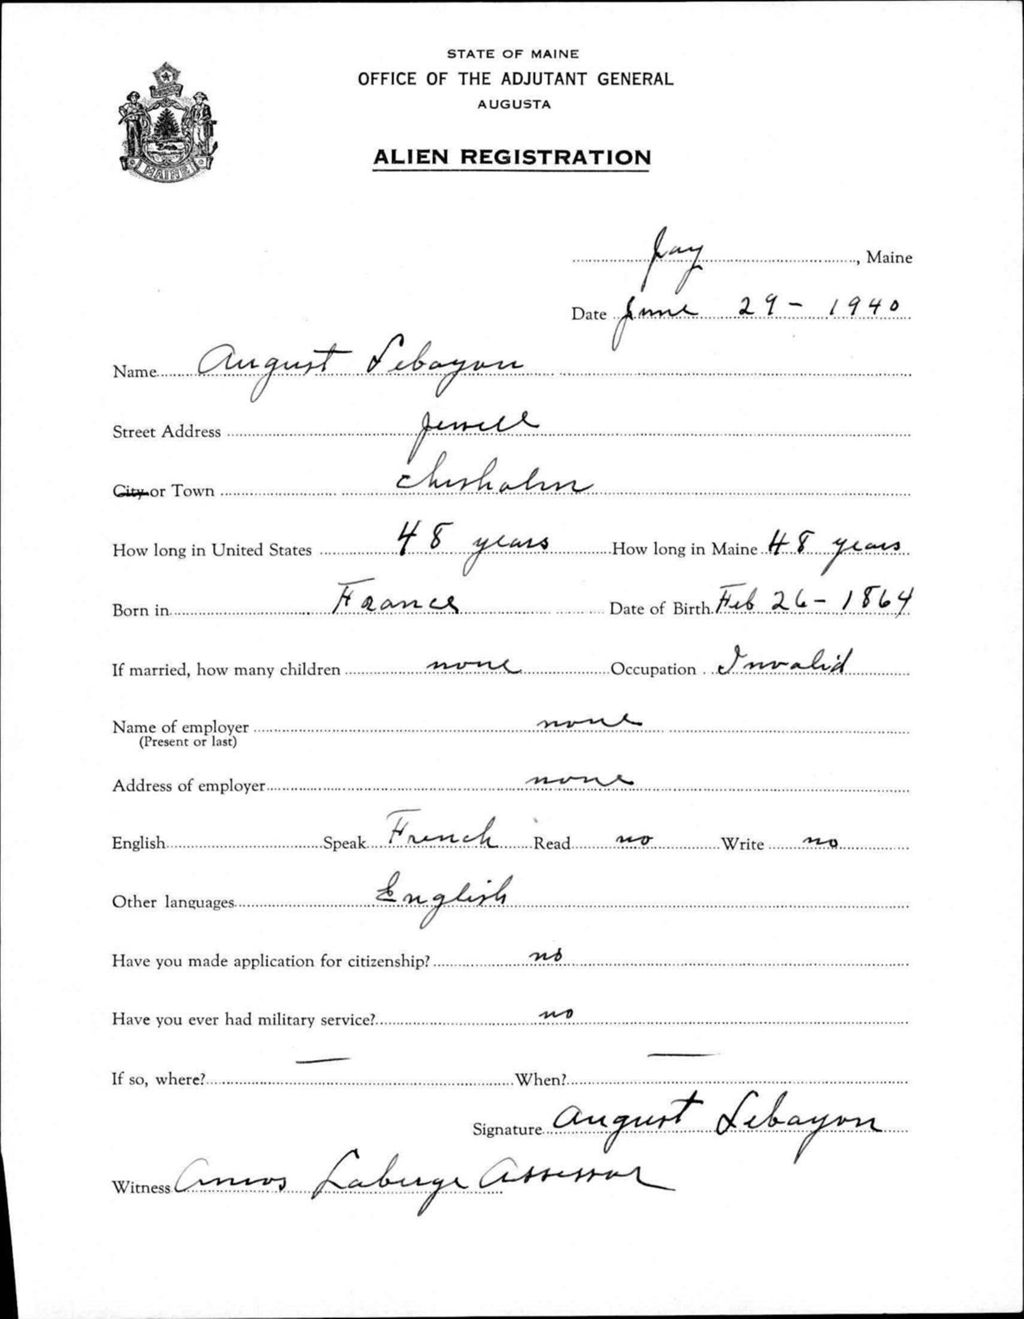 STATE OF MAINE
OFFICE OF THE ADJUTANT GENERAL
AUGUSTA
ALIEN REGISTRATION
MAINE
Jay, Maine
Date June 29 - 1940
Name August Lebayon
Street Address Jewell
City or Town Chisholm
How long in United States 48 years How long in Maine 48 years
Born in France Date of Birth Feb 26 - 1864
If married, how many children none Occupation Invalid
Name of employer none
(Present or last)
Address of employer none
English Speak French Read no Write no
Other languages English
Have you made application for citizenship? no
Have you ever had military service? no
If so, where? — When? —
Signature August Lebayon
Witness Amos Laberge Assessor